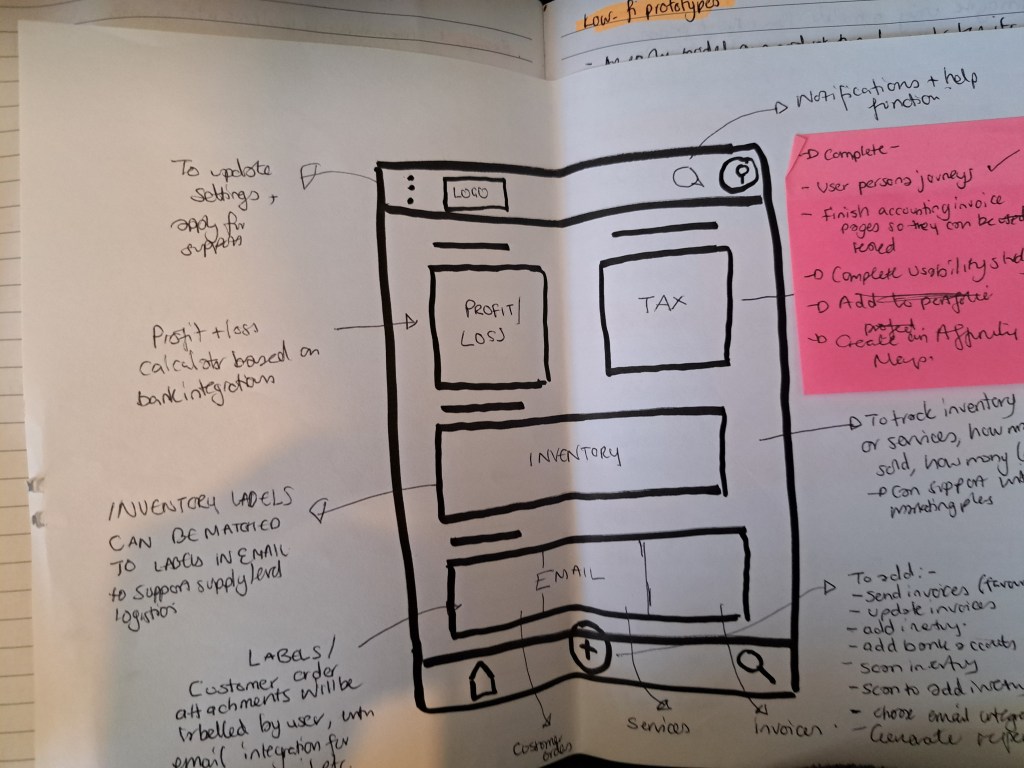 Low-fi prototypes
Notifications + help
function
To update
settings +
apply for
support
LOGO
PROFIT/
LOSS
TAX
Profit + loss
calculator based on
bank integrations
INVENTORY
INVENTORY LABELS
CAN BE MATCHED
TO LABELS IN EMAIL
to support supply level
EMAIL
LABELS/
Customer order
attachments will be
labelled by user, with
email integration for
Customer
orders
Services
Invoices
Complete -
- User persona journeys ✓
- Finish accounting invoice
pages so they can be used
tested
Complete usability
Add to
Create an Affinity
Map.
To track inventory
or services, how
sold, how many
Can support
To add:-
- Send invoices
- update invoices
- add
- add bank accounts
- scan
- scan to add
- choose email
Generate